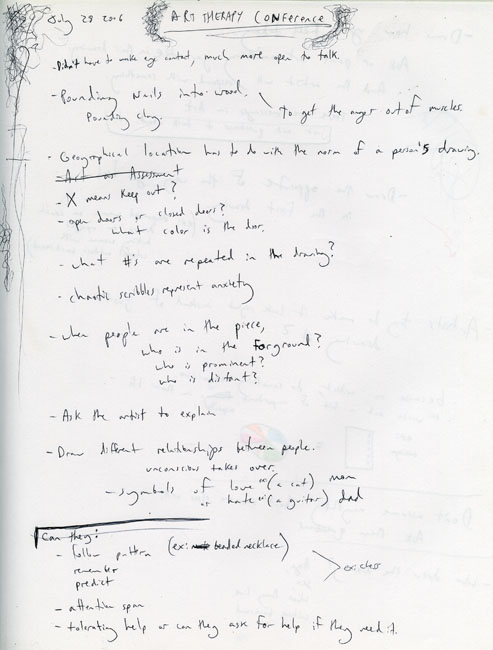 July 28 2006
ART THERAPY CONFERENCE
- Didn't have to make eye contact, much more open to talk.
- Pounding Nails into wood. \ To get the anger out of muscles.
Pounding clay.
- Geographical location has to do with the norm of a person's drawing.
- Art as Assessment
- X means Keep out?
- open doors or closed doors?
what color is the door.
- what #'s are repeated in the drawing?
- chaotic scribbles represent anxiety
- when people are in the piece,
who is in the forground?
who is prominent?
who is distant?
- Ask the artist to explain
- Draw different relationships between people.
unconscious takes over.
- symbols of love (a cat) mom
or hate (a guitar) dad
Can they:
- follow pattern (ex: beaded necklace)
remember
predict
- attention span
- tolerating help or can they ask for help if they need it.